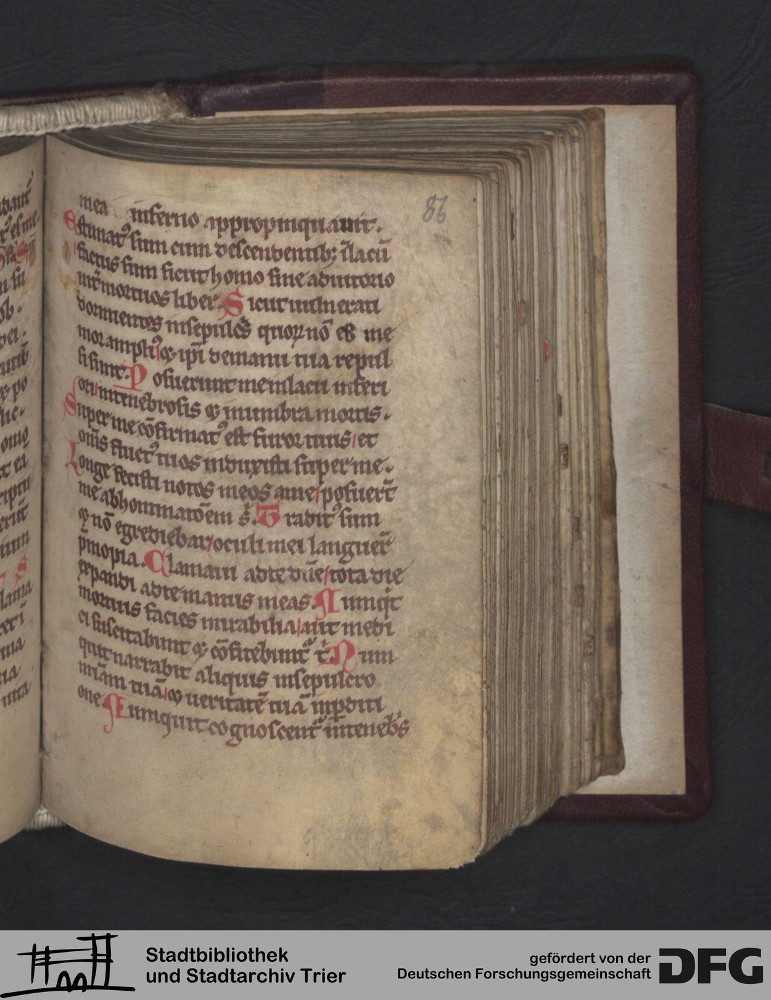 86
mea inferno appropinquauit.
Estimatꝰ sum cum descendentibꝫ ĩlacũ
factus sum sicut homo sine adiutorio
int̃ mortuos liber. Sicut uulnerati
dormientes insepulc̃s quoꝝ nõ es me
mor ampliꝰ ⁊ ip̃i de manu tua repul
si sunt. Posuerunt me in lacu inferi
ori in tenebrosis ⁊ in umbra mortis.
Super me cõfirmatꝰ est furor tuus et
om̃s fluctꝰ tuos induxisti super me.
Longe fecisti notos meos a me posuer̃t
me abhominatõem s̃. Traditꝰ sum
⁊ nõ egrediebar oculi mei languer̃
p̃ inopia. Clamaui ad te dñe tota die
expandi ad te manus meas. Nunq̃t
mortuis facies mirabilia aut medi
ci suscitabunt ⁊ cõfitebunt̃ t̃. Num
quit narrabit aliquis in sepulcro
miam̃ tuã ⁊ ueritatẽ tuã in p̃diti
one. Numquit cognoscent̃ in teneb̃s
Stadtbibliothek
und Stadtarchiv Trier
gefördert von der
Deutschen Forschungsgemeinschaft
DFG